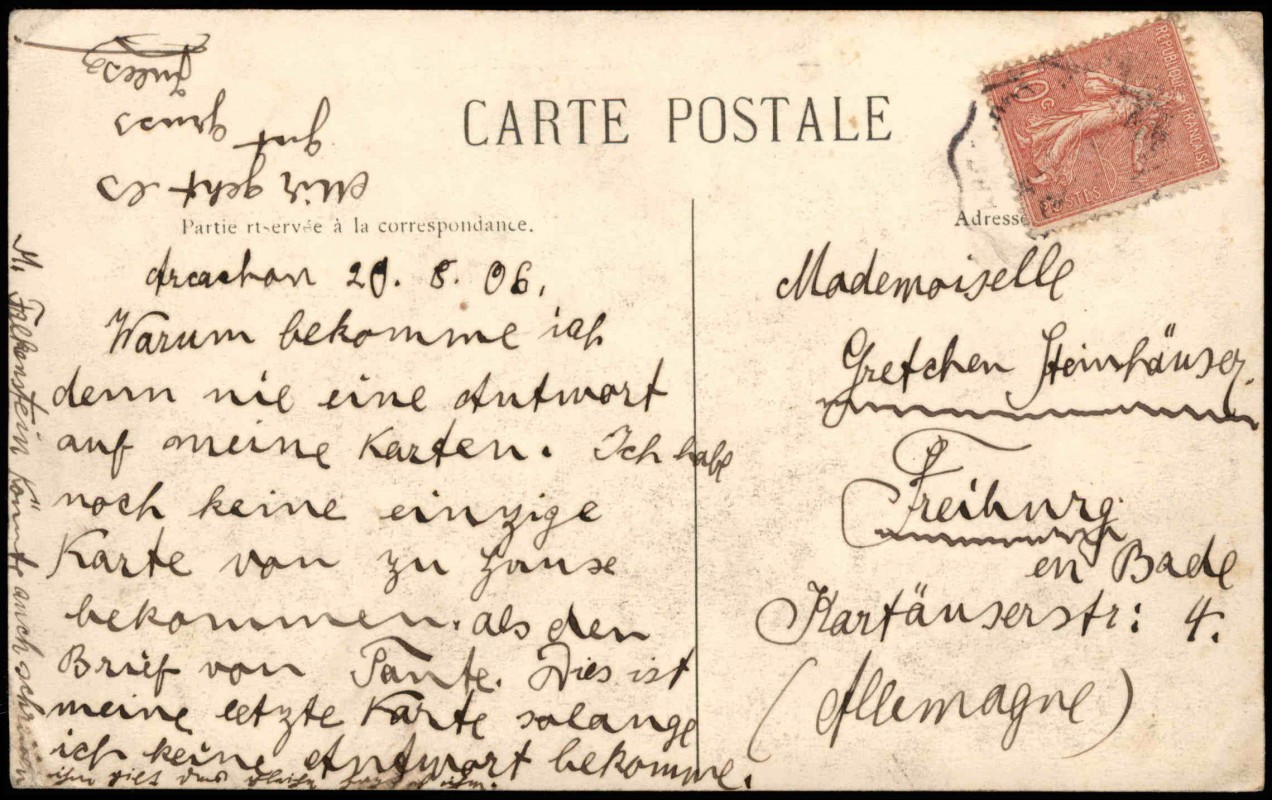 CARTE POSTALE
Partie réservée à la correspondance.
Adresse
RÉPUBLIQUE FRANÇAISE
10 c
POSTES
Arcachon 20. 8. 06.
Warum bekomme ich
denn nie eine Antwort
auf meine Karten. Ich habe
noch keine einzige
Karte von zu Hause
bekommen. als den
Brief von Tante. Dies ist
meine letzte Karte solange
ich keine Antwort bekomme.
M. Falkenstein könnte auch schreiben
ihm gilt das gleiche
Mir geht es
gut
gruss
Jules
Mademoiselle
Gretchen Steinhäuser.
Freiburg
en Bade
Kartäuserstr: 4.
(Allemagne)